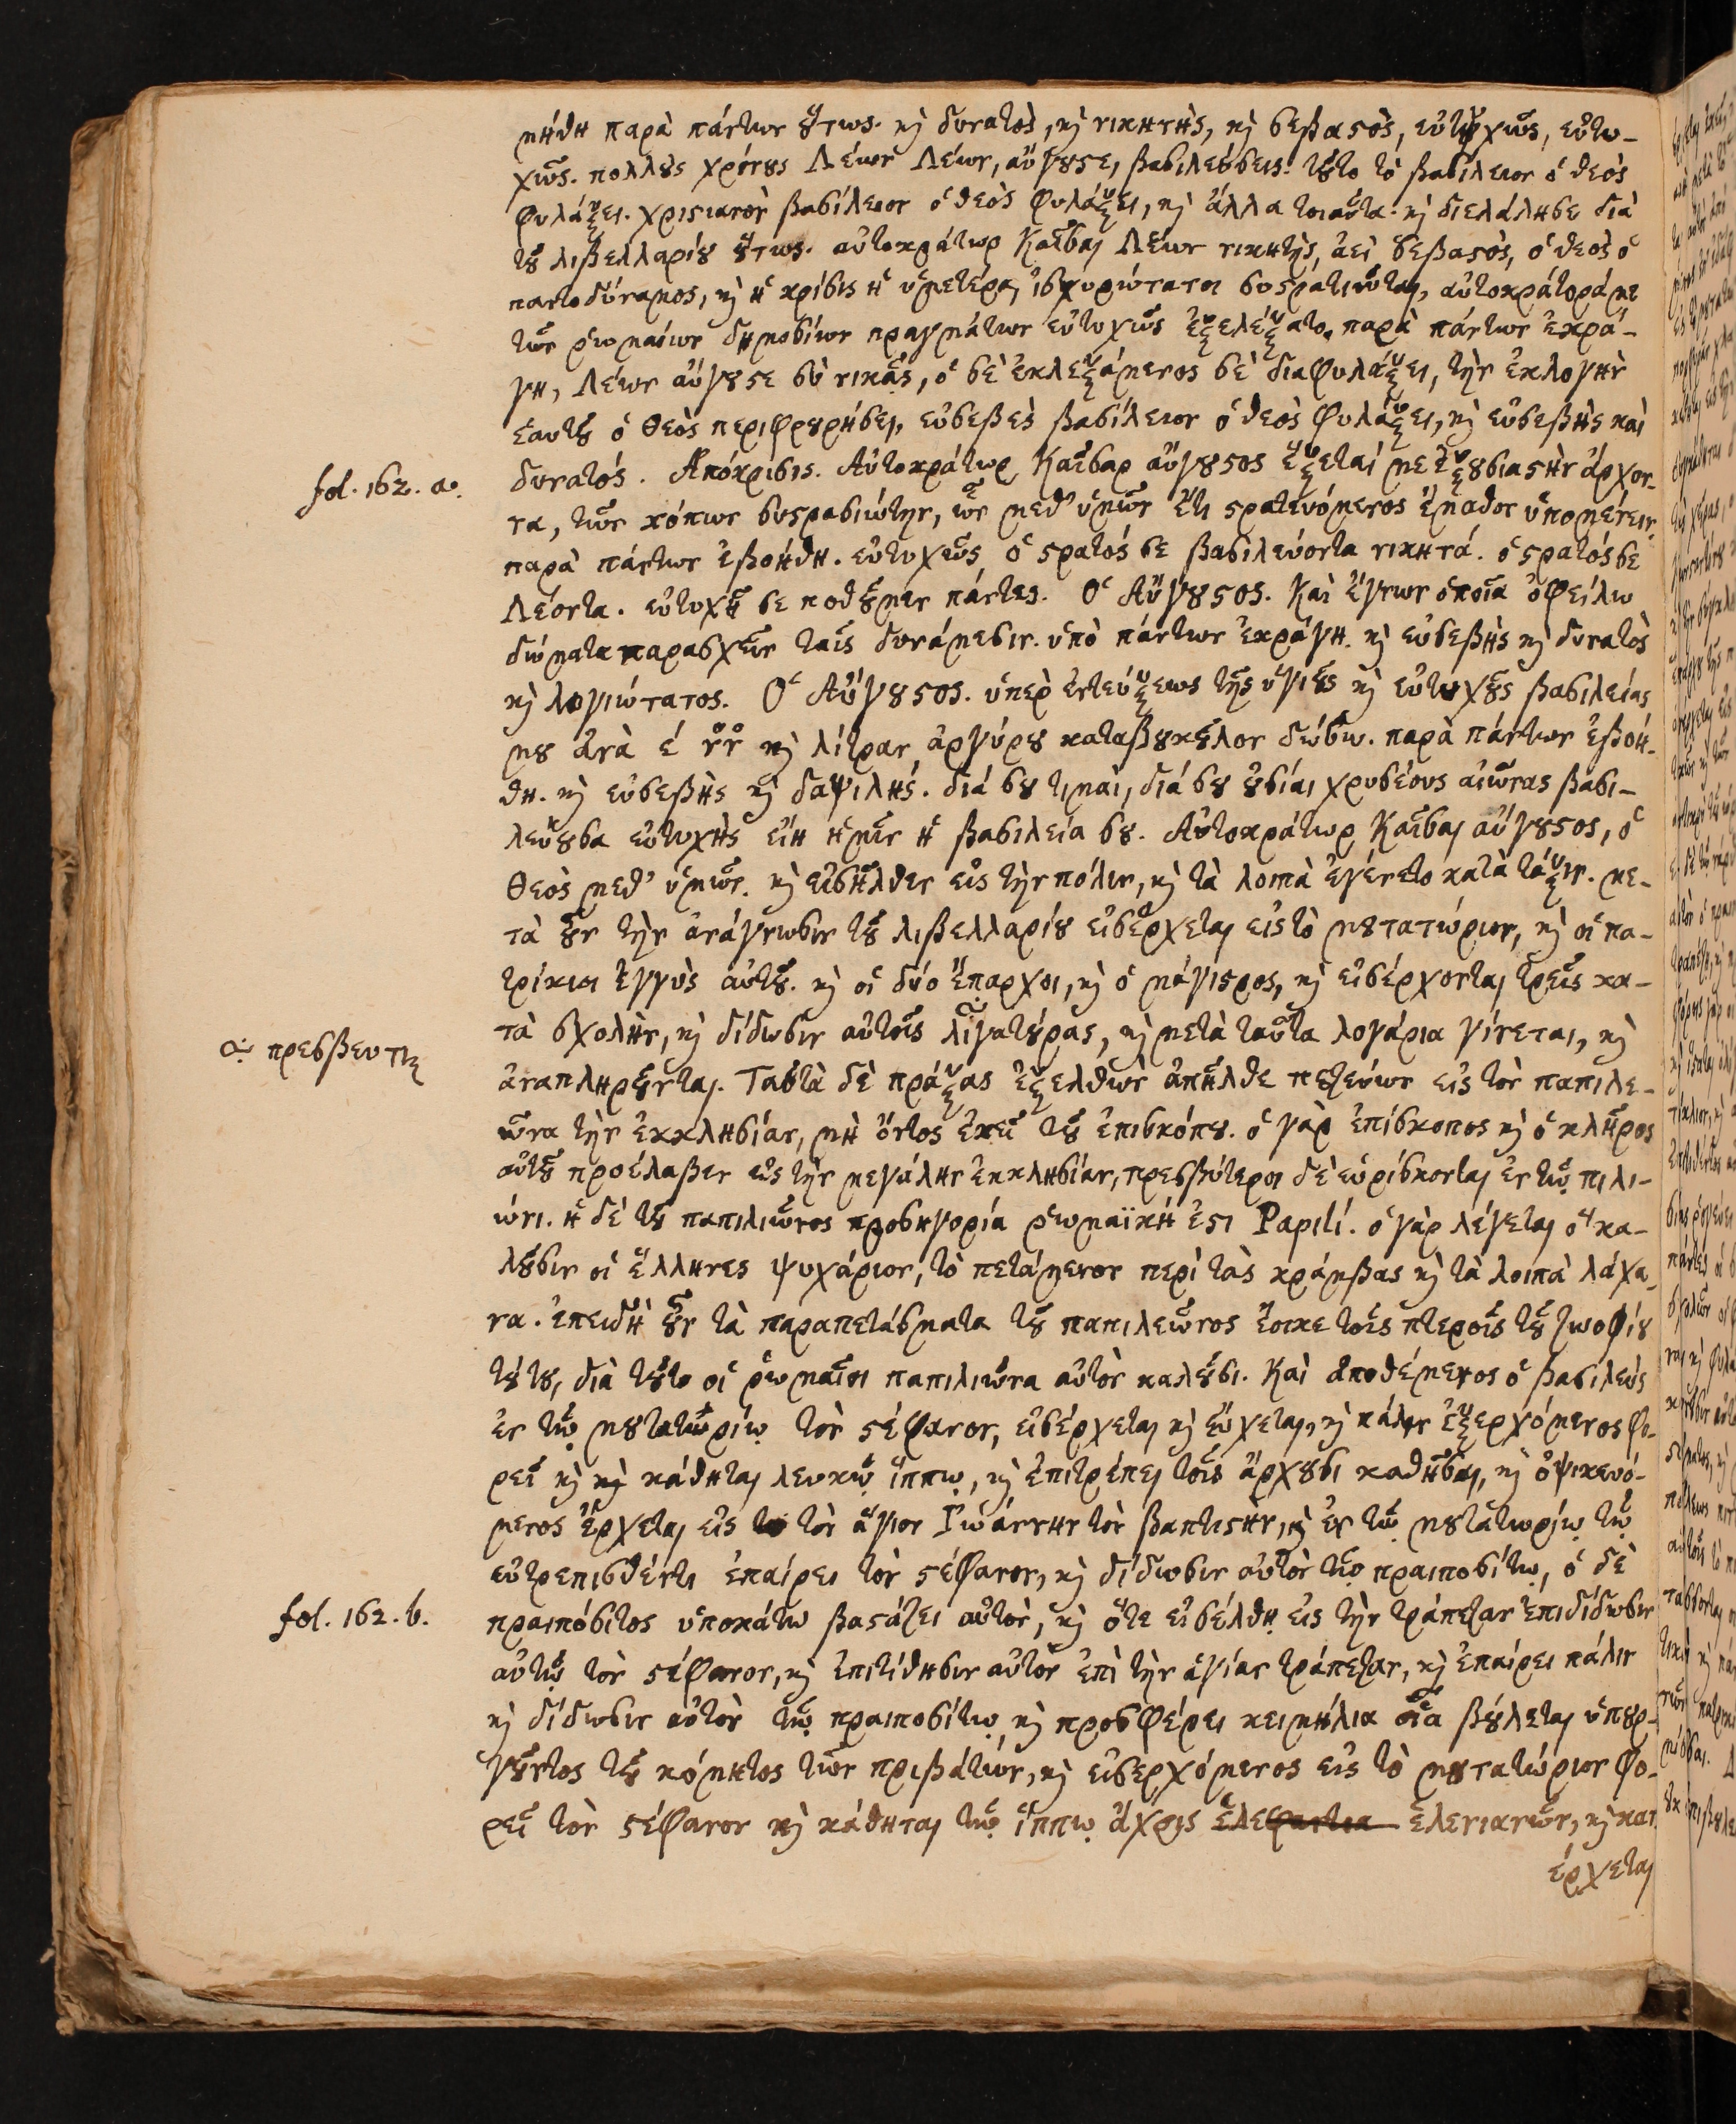 μήθη παρὰ πάντων ὅτως. κὶ δυνατὸς, κὶ νικητὴς, κὶ σεβαστὸς, εὐτυχῶς, εὐτυ-
χῶς. πολλὺς χρόνους Λέων Λέων, αὔγουστε, βασιλεύσεις. τοῦτο τὸ βασίλειον ὁ θεὸς
φυλάξει. χριστιανὸν βασίλειον ὁ θεὸς φυλάξει, κὶ ἄλλα τοιαῦτα. κὶ διελάλησε διὰ
τοῦ λιβελλαρίου οὕτως. αὐτοκράτωρ Καῖσαρ Λέων νικητὴς, ἀεὶ σεβαστὸς, ὁ θεὸς ὁ
παντοδύναμος, κὶ ἡ κρίσις ἡ ὑμετέρα, ἰσχυρώτατοι συστρατιῶται, αὐτοκράτορά με
τῶν ῥωμαίων δημοσίων πραγμάτων εὐτυχῶς ἐξελέξατο. παρὰ πάντων ἐκρά-
γη, Λέων αὔγουστε σὺ νικᾷς, ὁ σὲ ἐκλεξάμενος σὲ διαφυλάξει, τὴν ἐκλογὴν
ἑαυτοῦ ὁ Θεὸς περιφρουρήσει, εὐσεβὲς βασίλειον ὁ θεὸς φυλάξει, κὶ εὐσεβὴς καὶ
fol. 162. a. δυνατός. Ἀπόκρισις. Αὐτοκράτωρ Καῖσαρ αὔγουστος ἕξεταί με ἐξουσιαστὴν ἄρχον-
τα, τῶν κόπων συστρασιώτην, ὧν μεθ' ὑμῶν ἔτι στρατευόμενος ἔμαθον ὑπομένειν.
παρὰ πάντων ἐβοήθη. εὐτυχῶς, ὁ στρατός σε βασιλεύοντα νικητά. ὁ στρατός σε
Λέοντα. εὐτυχῆ σε ποθοῦμεν πάντες. Ὁ Αὔγουστος. Καὶ ἔγνων ὁποῖα ὀφείλω
δώματα παρασχεῖν ταῖς δυνάμεσιν. ὑπὸ πάντων ἐκράγη. κὶ εὐσεβὴς κὶ δυνατὸς
κὶ λογιώτατος. Ὁ Αὔγουστος. ὑπὲρ ἐντεύξεως τῆς ὑγιοῦς κὶ εὐτυχοῦς βασιλείας
μου ἀνὰ έ νν κὶ λίτραν ἀργύρου καταβουκοῦλον δώσω. παρὰ πάντων ἐβοή-
θη. κὶ εὐσεβὴς κὶ δαψιλής. διά σου τιμαὶ, διά σου οὐσίαι χρυσέους αἰῶνας βασι-
λεύουσα εὐτυχὴς εἴη ἡμῖν ἡ βασιλεία σου. Αὐτοκράτωρ Καῖσαρ αὔγουστος, ὁ
Θεὸς μεθ' ὑμῶν. κὶ εἰσῆλθεν εἰς τὴν πόλιν, κὶ τὰ λοιπὰ ἐγένετο κατὰ τάξιν. με-
τὰ οὖν τὴν ἀνάγνωσιν τοῦ λιβελλαρίου εἰσέρχεται εἰς τὸ μουτατώριον, κὶ οἱ πα-
τρίκιοι ἐγγὺς αὐτοῦ. κὶ οἱ δύο ἔπαρχοι, κὶ ὁ μάγιστρος, κὶ εἰσέρχονται τρεῖς κα-
πρεσβευτ τὰ σχολὴν, κὶ δίδωσιν αὐτοῖς λιγατύρας, κὶ μετὰ ταῦτα λογάρια γίνεται, κὶ
ἀναπληροῦνται. Ταῦτὰ δὲ πράξας ἐξελθὼν ἀπῆλθε πεζεύων εἰς τὸν παπιλε-
ῶνα τὴν ἐκκλησίαν, μὴ ὄντος ἐκεῖ τοῦ ἐπισκόπου. ὁ γὰρ ἐπίσκοπος κὶ ὁ κλῆρος
αὐτοῦ προέλαβεν εἰς τὴν μεγάλην ἐκκλησίαν, πρεσβύτεροι δὲ εὑρίσκονται ἐν τῷ πιλι-
ώνι. ἡ δὲ τοῦ παπιλιῶνος προσηγορία ῥωμαϊκή ἐστι Papili. ὁ γὰρ λέγεται ὃ κα-
λοῦσιν οἱ ἕλληνες ψυχάριον, τὸ πετάμενον περὶ τὰς κράμβας κὶ τὰ λοιπὰ λάχα-
να. ἐπειδὴ οὖν τὰ παραπετάσματα τοῦ παπιλεῶνος ἔοικε τοῖς πτεροῖς τοῦ ζωοφίου
τούτου, διὰ τοῦτο οἱ ῥωμαῖοι παπιλιῶνα αὐτὸν καλοῦσι. Καὶ ἀποθέμενος ὁ βασιλεὺς
ἐν τῷ μουτατωρίῳ τὸν στέφανον, εἰσέρχεται κὶ εὔχεται, κὶ πάλιν ἐξερχόμενος φο-
ρεῖ κὶ κὶ κάθηται λευκῷ ἵππῳ, κὶ ἐπιτρέπει τοῖς ἄρχουσι καθῆσαι, κὶ ὀψικευό-
μενος ἔρχεται εἰς το τὸν ἅγιον Ἰωάννην τὸν βαπτιστὴν, κὶ ἐν τῷ μουτατωρίῳ τῷ
εὐτρεπισθέντι ἐπαίρει τὸν στέφανον, κὶ δίδωσιν αὐτὸν τῷ πραιποσίτῳ, ὁ δὲ
fol. 162. b. πραιπόσιτος ὑποκάτω βαστάζει αὐτὸν, κὶ ὅτε εἰσέλθῃ εἰς τὴν τράπεζαν ἐπιδίδωσιν
αὐτῷ τὸν στέφανον, κὶ ἐπιτίθησιν αὐτὸν ἐπὶ τὴν ἁγίαν τράπεζαν, κὶ ἐπαίρει πάλιν
κὶ δίδωσιν αὐτὸν τῷ πραιποσίτῳ κὶ προσφέρει κειμήλια οἷα βούλεται ὑπουρ-
γοῦντος τοῦ κόμητος τῶν πριβάτων, κὶ εἰσερχόμενος εἰς τὸ μουτατώριον φο-
ρεῖ τὸν στέφανον κὶ κάθηται τῷ ἵππῳ ἄχρις ἐλεφαντια ἑλενιανῶν, κὶ κατ
έρχεται